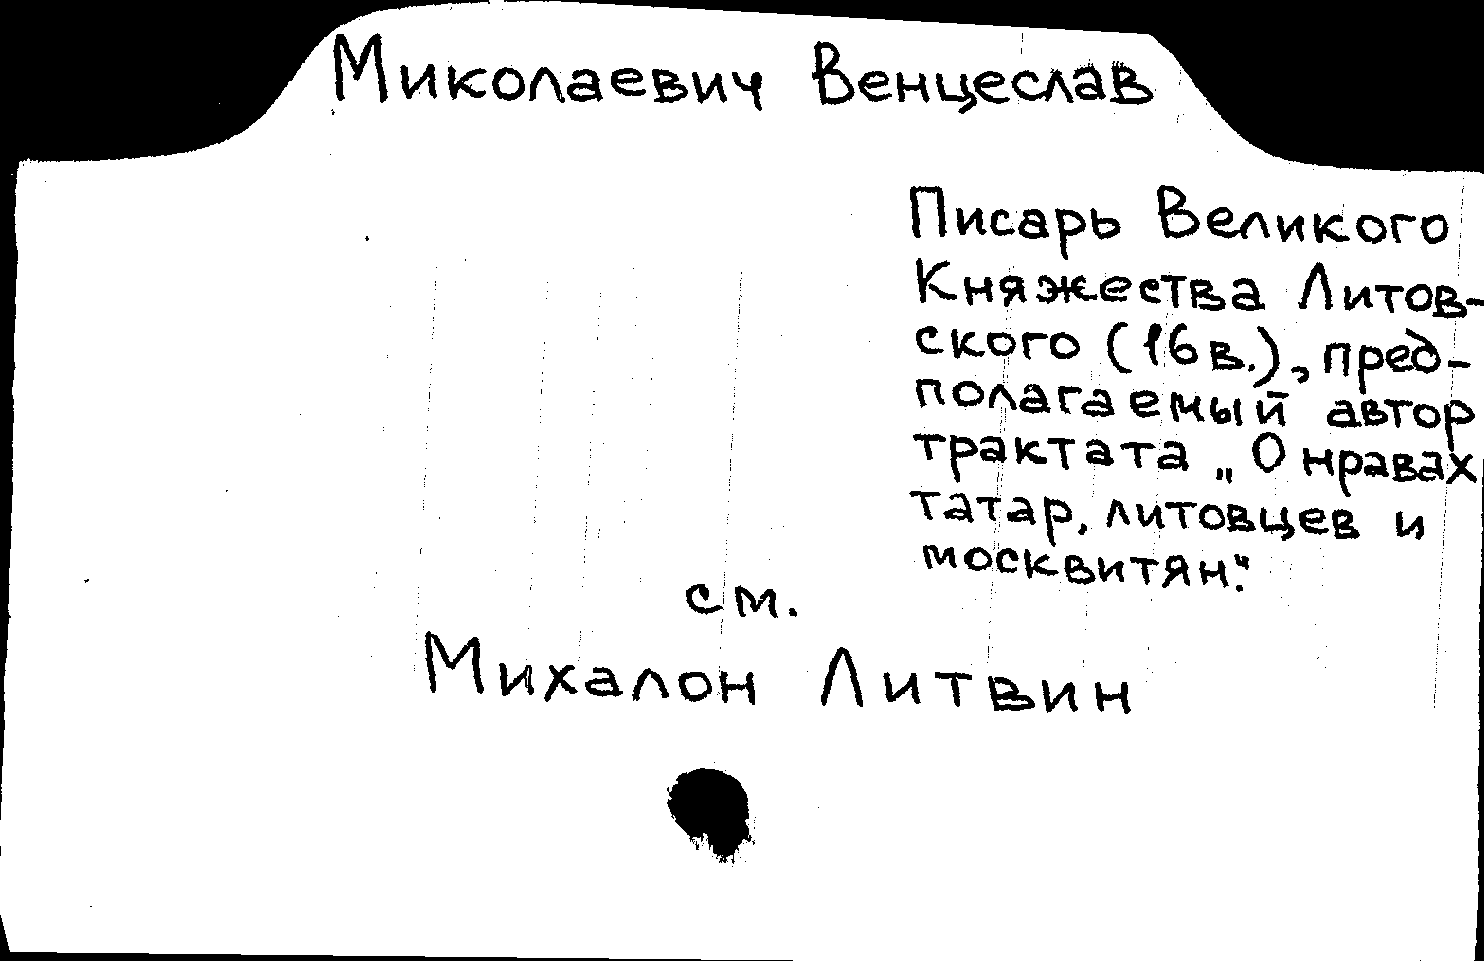 Миколаевич Венцеслав
Писарь Великого
Княжества Литов-
ского (16 в.), пред-
полагаемый автор
трактата „О нравах
татар, литовцев и
москвитян".
см.
Михалон Литвин